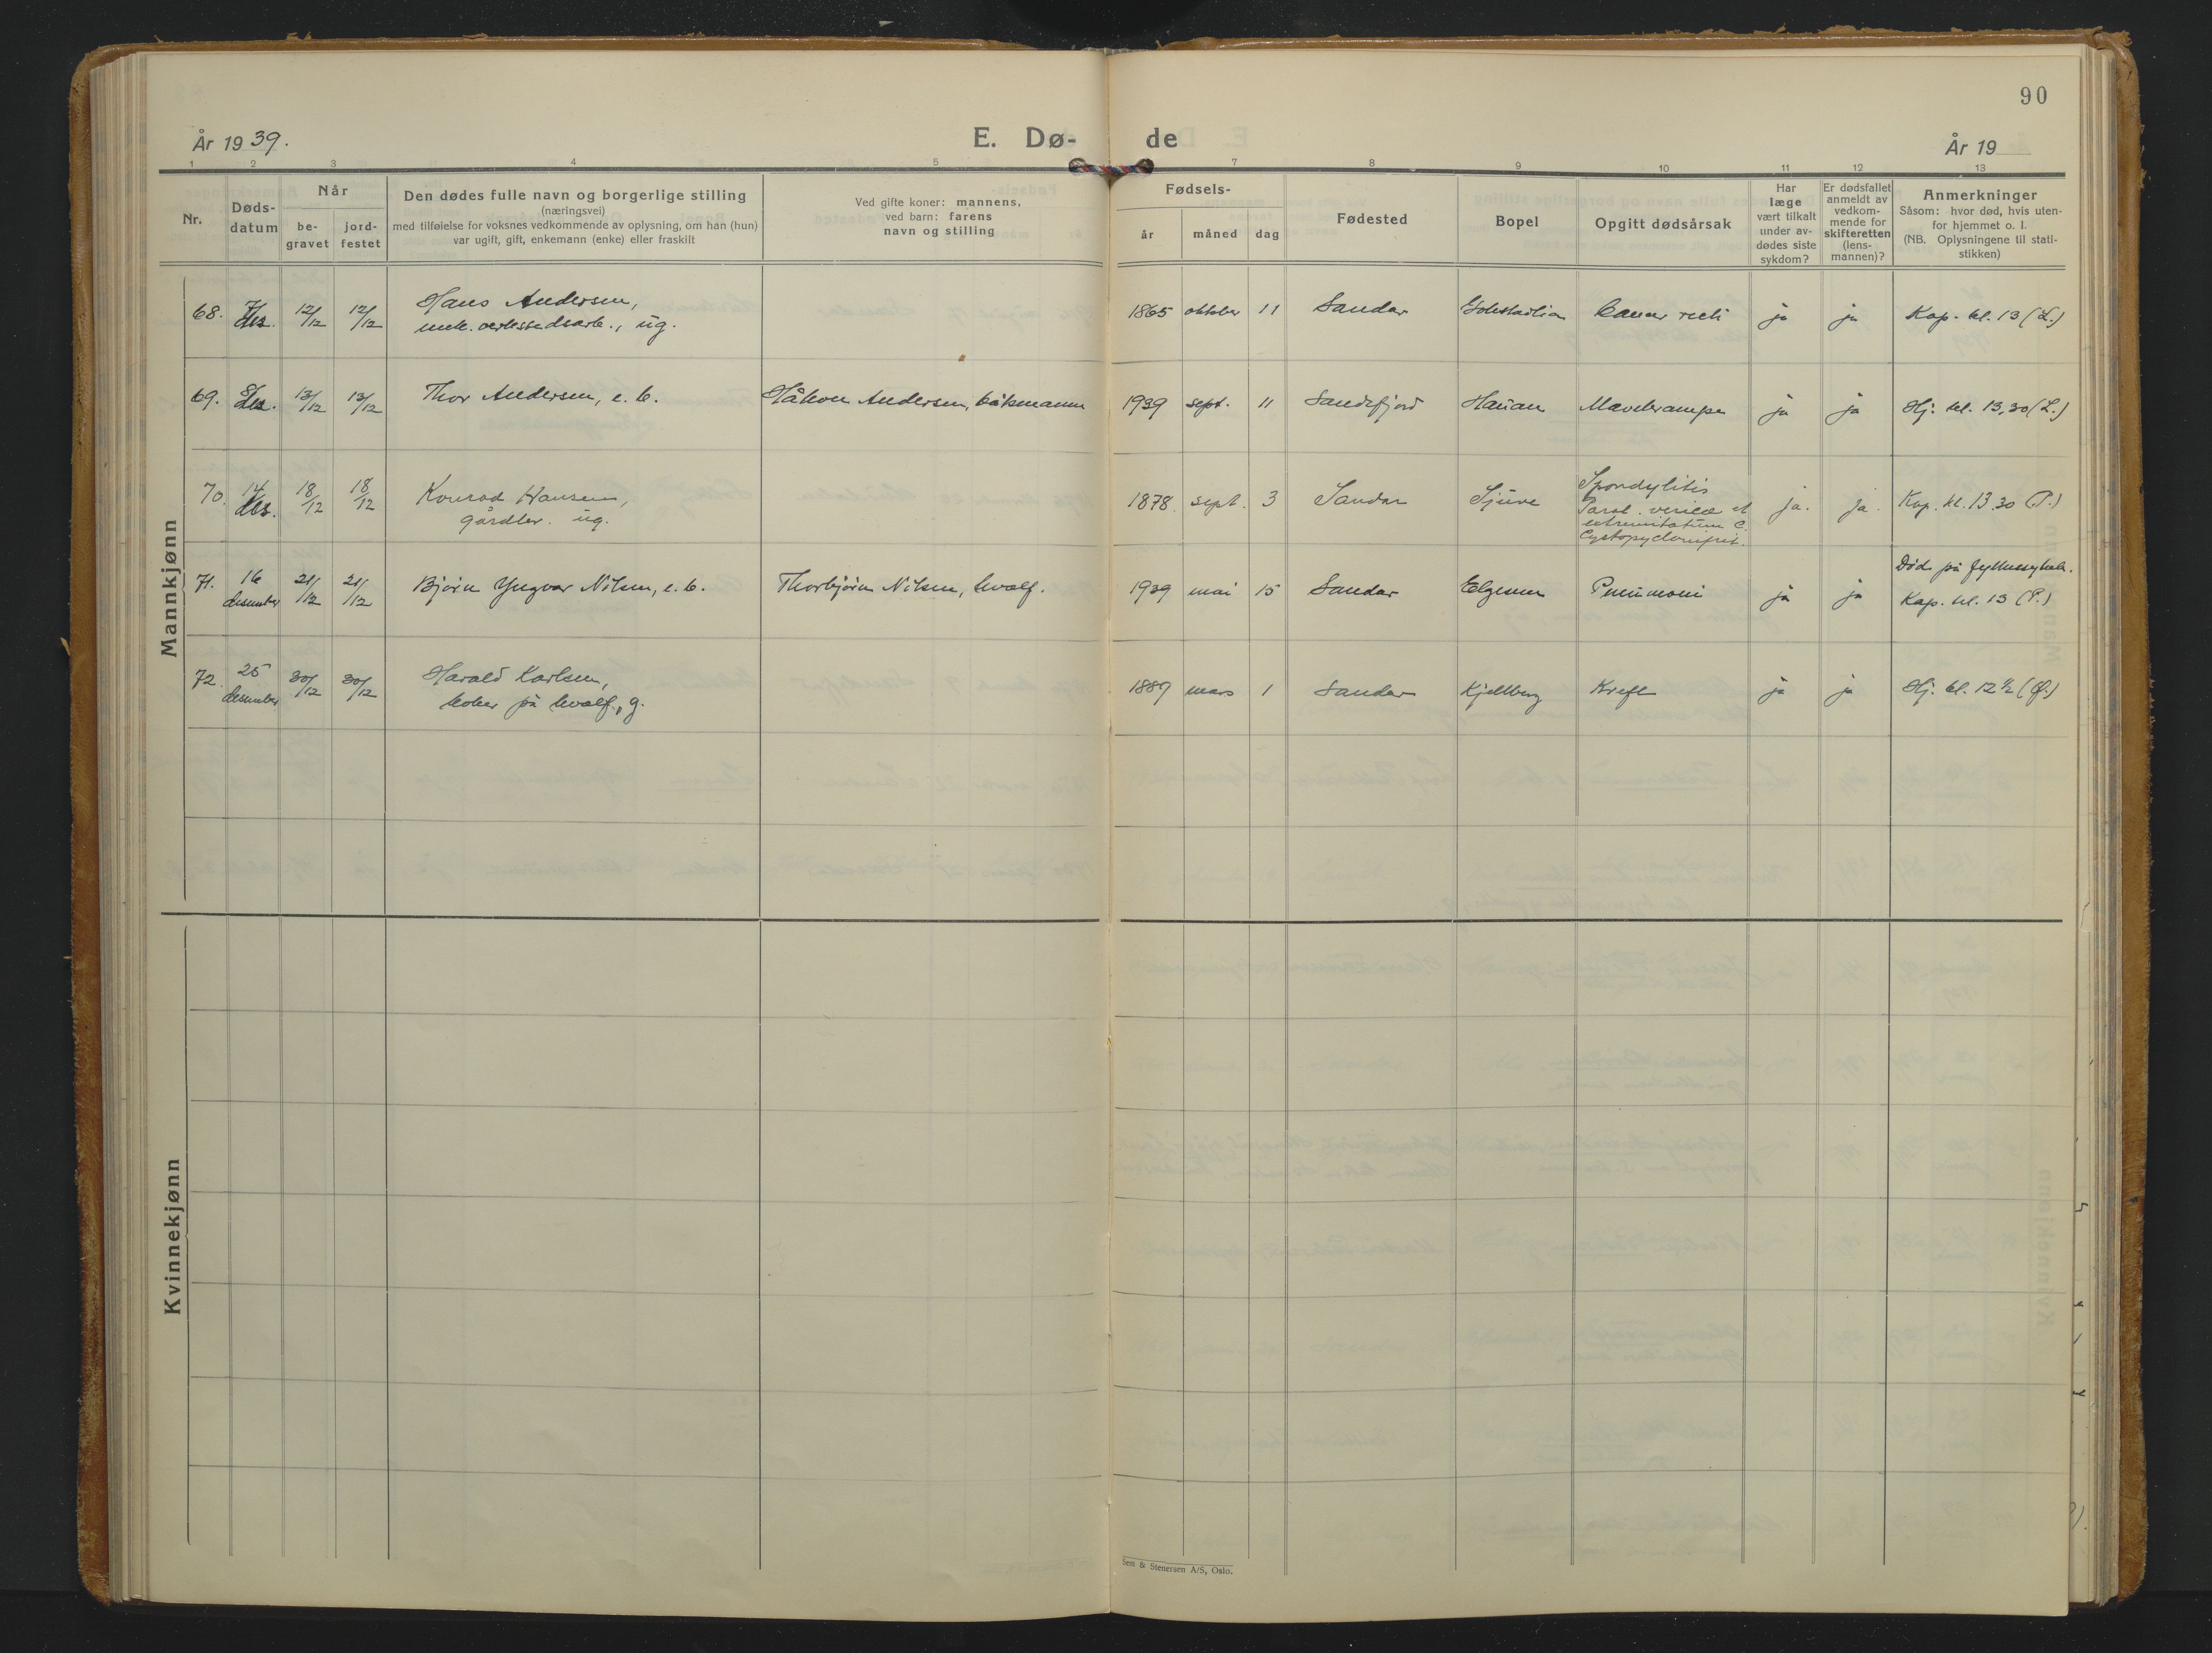 90
År 1939.
E. Dø-
de
År 19
1 2 3 4 5 7 8 9 10 11 12 13
Nr.
Døds-
datum
Når
be-
gravet
jord-
festet
Den dødes fulle navn og borgerlige stilling
(næringsvei)
med tilføielse for voksnes vedkommende av oplysning, om han (hun)
var ugift, gift, enkemann (enke) eller fraskilt
Ved gifte koner: mannens,
ved barn: farens
navn og stilling
Fødsels-
år
måned
dag
Fødested
Bopel
Opgitt dødsårsak
Har
læge
vært tilkalt
under av-
dødes siste
sykdom?
Er dødsfallet
anmeldt av
vedkom-
mende for
skifteretten
(lens-
mannen)?
Anmerkninger
Såsom: hvor død, hvis uten-
for hjemmet o. l.
(NB. Oplysningene til stati-
stikken)
Mannkjønn
68. 7/des. 12/12 12/12 Hans Andersen,
ug.
1865 oktober 11 Sandar Cancer recti ja ja Kap. kl. 13 (L.)
69. 8/des. 13/12 13/12 Thor Andersen, e. b. Håkon Andersen, båtsmann 1939 sept. 11 Sandefjord Hauan Mavekrampe ja ja Hj. kl. 13,30 (L.)
70. 14/des. 18/12 18/12 Konrad Hansen,
gårdbr. ug.
1878. sept. 3 Sandar Sjuve Spondylitis
Paral. vesicæ et
extremitatum
ja. ja. Kap. kl. 13.30 (P.)
71. 16 desember 21/12 21/12 Bjørn Yngvar Nilsen, e. b. Thorbjørn Nilsen, hvalf. 1939 mai 15 Sandar Elgesem Pneumoni ja ja Død på fylkessykeh.
Kap. kl. 13 (P.)
72. 25 desember 30/12 30/12 Harald Karlsen,
koker på hvalf., g.
1889 mars 1 Sandar Kjellberg Kreft ja ja Hj. kl. 12 ½ (Ø.)
Kvinnekjønn
Sem & Stenersen A/S, Oslo.